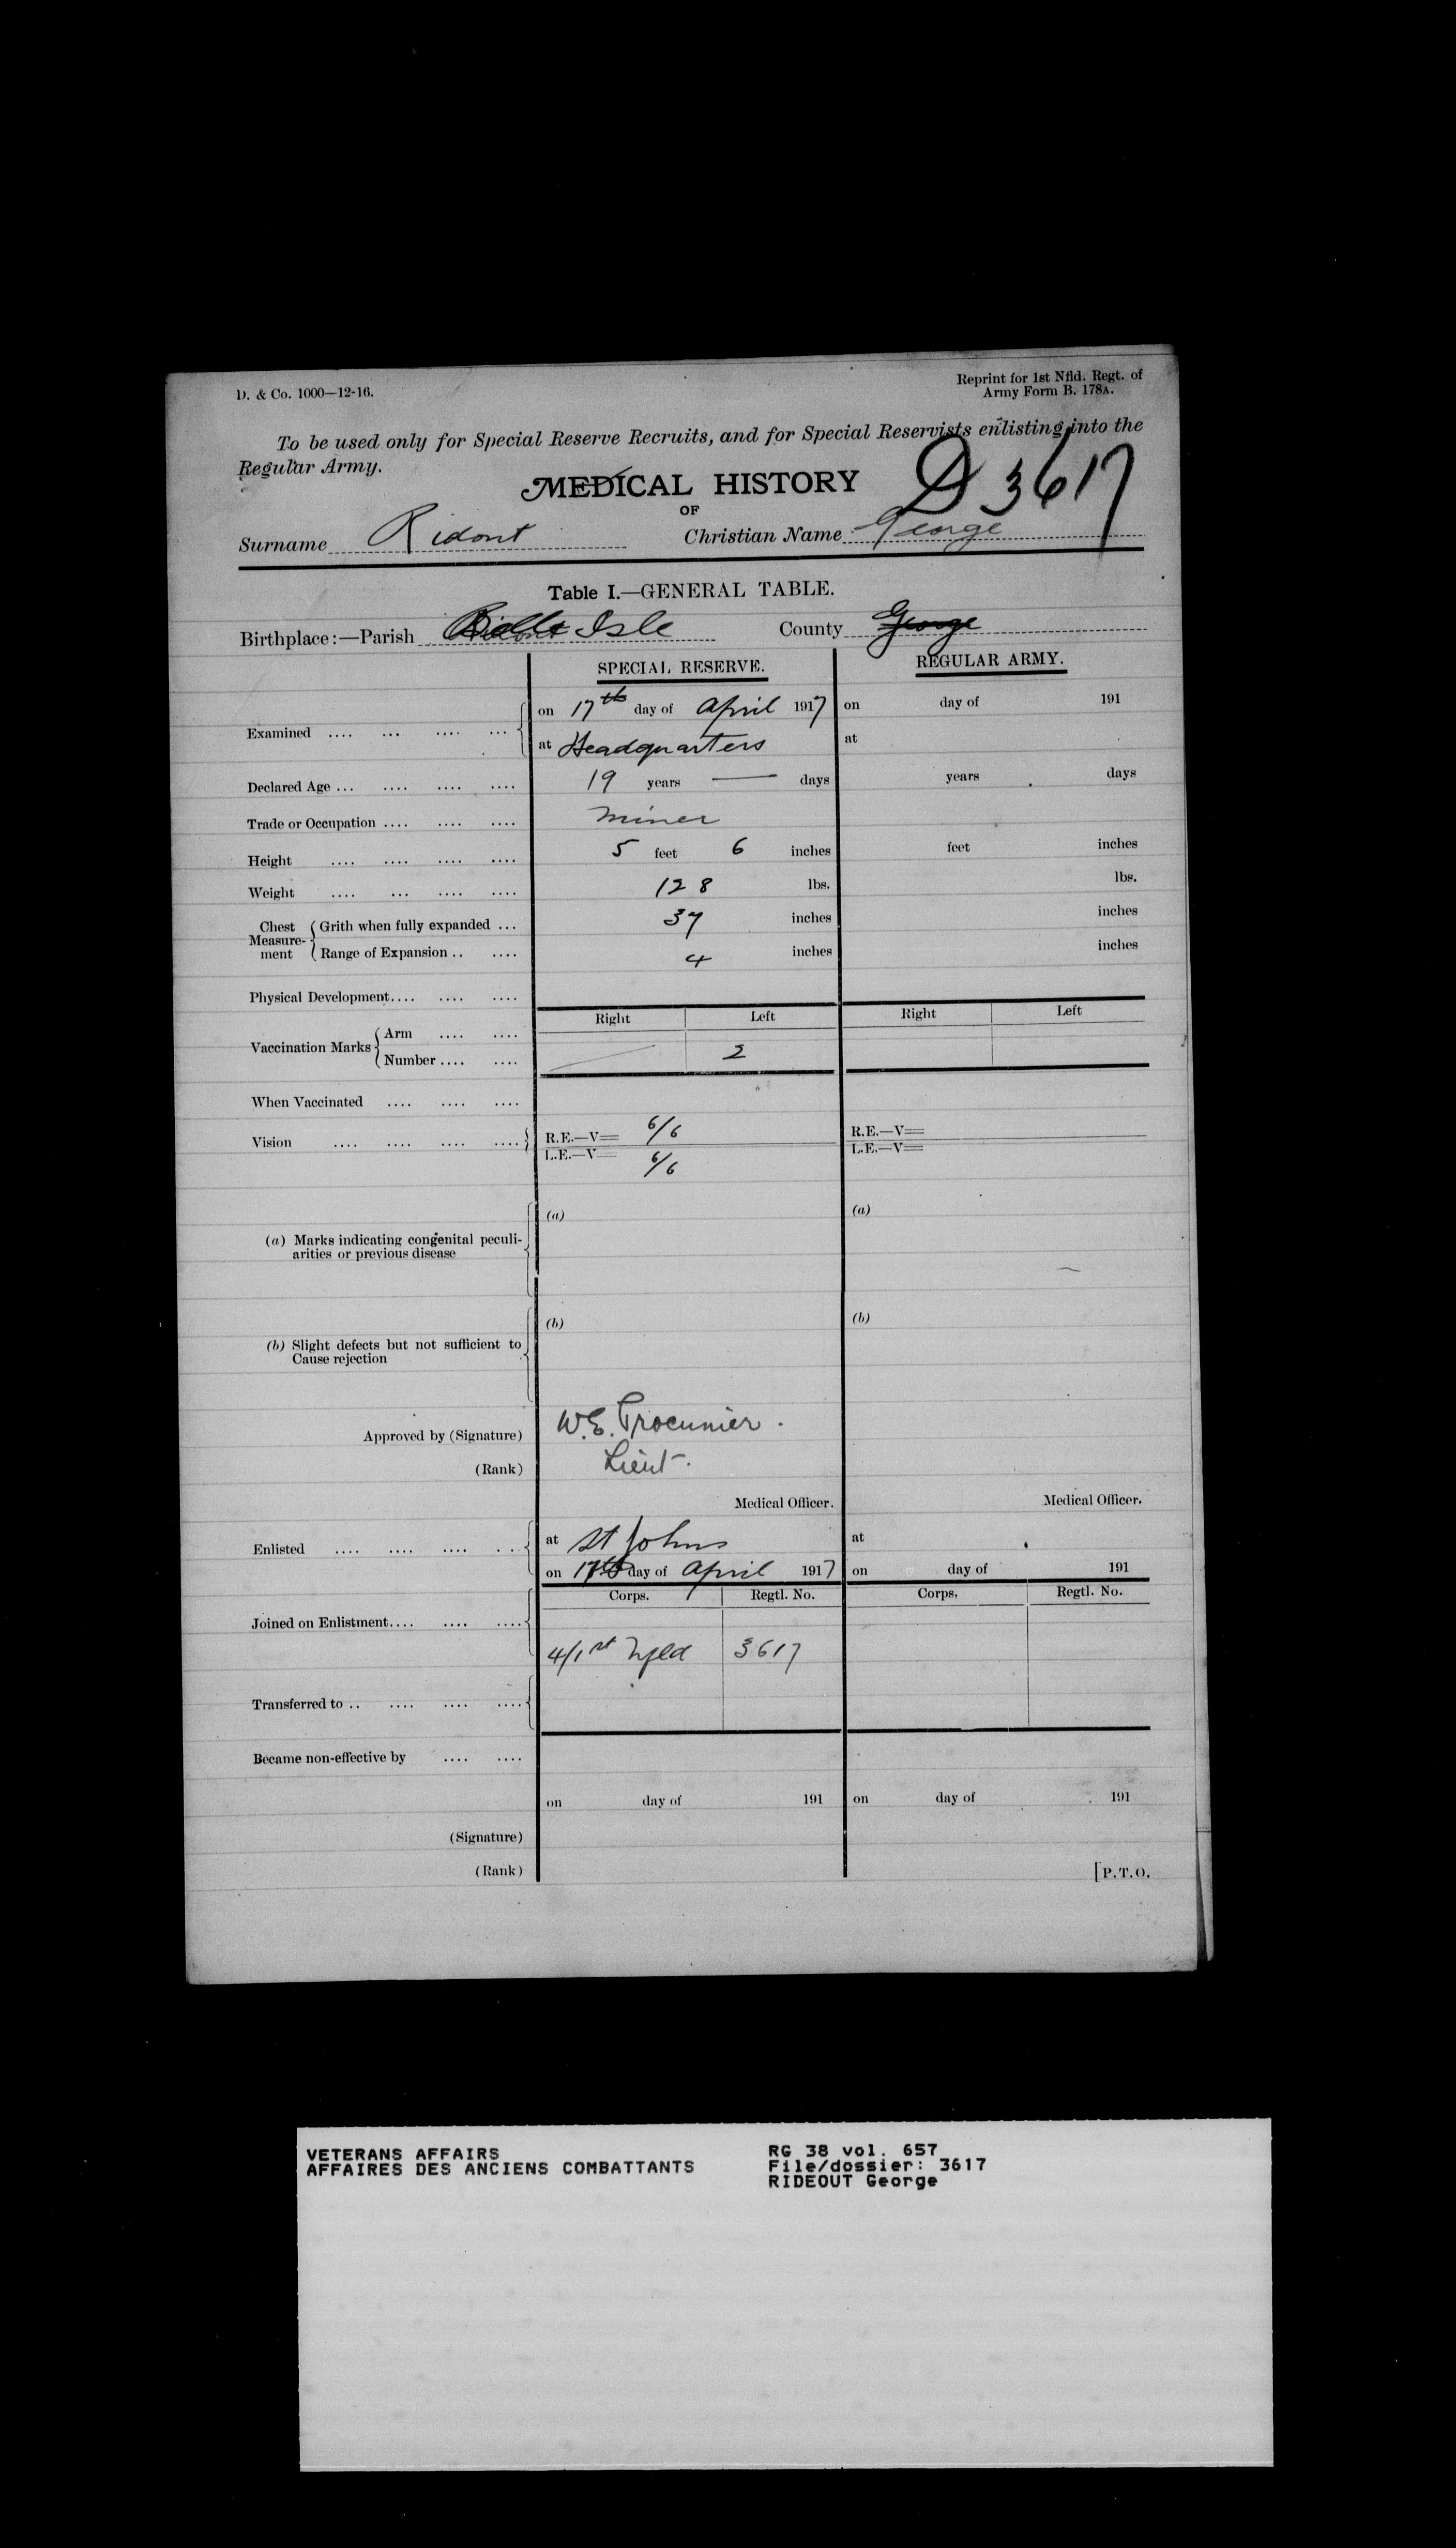 D. & Co. 1000—12-16.
Reprint for 1st Nfld. Regt. of
Army Form B. 178A.
To be used only for Special Reserve Recruits, and for Special Reservists enlisting into the
Regular Army.
MEDICAL HISTORY D 3617
OF
Surname Ridout Christian Name George
Table I.—GENERAL TABLE.
Birthplace:—Parish Belle Isle County George
SPECIAL RESERVE. REGULAR ARMY.
Examined .... ... .... ... on 17th day of April 1917 on day of 191
at Headquarters at
Declared Age ... .... .... .... 19 years — days years days
Trade or Occupation .... .... .... miner
Height .... .... .... .... 5 feet 6 inches feet inches
Weight .... ... .... .... 128 lbs. lbs.
Chest Measurement Grith when fully expanded ... 37 inches inches
Range of Expansion .. .... 4 inches inches
Physical Development.... .... ....
Right Left Right Left
Vaccination Marks Arm .... ....
Number .... .... 2
When Vaccinated .... .... ....
Vision .... .... .... .... R.E.—V= 6/6 R.E.—V=
L.E.—V= 6/6 L.E.—V=
(a) (a)
(a) Marks indicating congenital peculi-
arities or previous disease
(b) (b)
(b) Slight defects but not sufficient to
Cause rejection
Approved by (Signature) W.E. Procunier.
(Rank) Lieut.
Medical Officer. Medical Officer.
Enlisted .... .... .... .. at St Johns at
on 17th day of April 1917 on day of 191
Corps. Regtl. No. Corps. Regtl. No.
Joined on Enlistment.... .... ....
4/1st Nfld 3617
Transferred to .. .... .... ....
Became non-effective by .... ....
on day of 191 on day of 191
(Signature)
(Rank)
[P.T.O.
VETERANS AFFAIRS RG 38 vol. 657
AFFAIRES DES ANCIENS COMBATTANTS File/dossier: 3617
RIDEOUT George